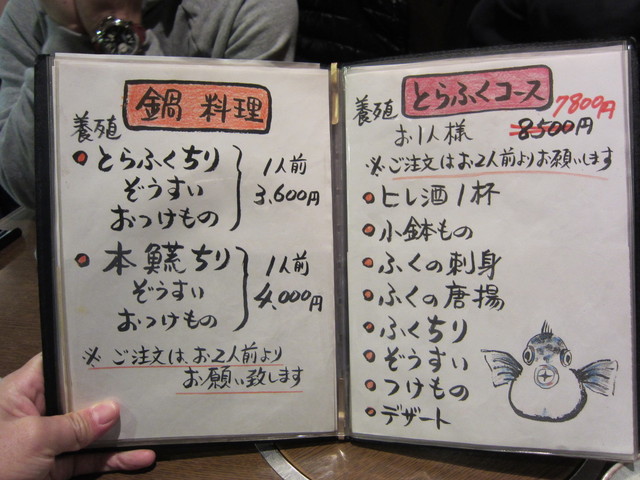 鍋料理
養殖
とらふくちり
ぞうすい
おつけもの
1人前
3,600円
本鱶ちり
ぞうすい
おつけもの
1人前
4,000円
※ご注文は、お2人前より
お願い致します
養殖
とらふくコース
7800円
お1人様 8,500円
※ご注文はお2人前よりお願いします
ヒレ酒1杯
小鉢もの
ふくの刺身
ふくの唐揚
ふくちり
ぞうすい
つけもの
デザート